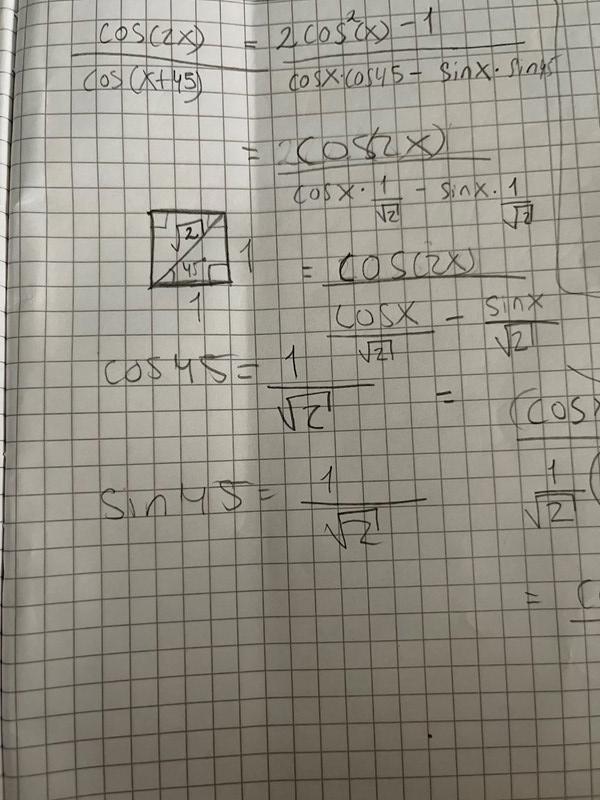 cos(2x) / cos(x+45) = 2cos²(x) - 1 / cosx·cos45 - sinx·sin45
= 2cos(2x) / cosx · 1/√2 - sinx · 1/√2
√2
45°
1
1
= cos(2x) / cosx/√2 - sinx/√2
cos45 = 1/√2
= (cosx / 1/√2 (
sin45 = 1/√2
= c